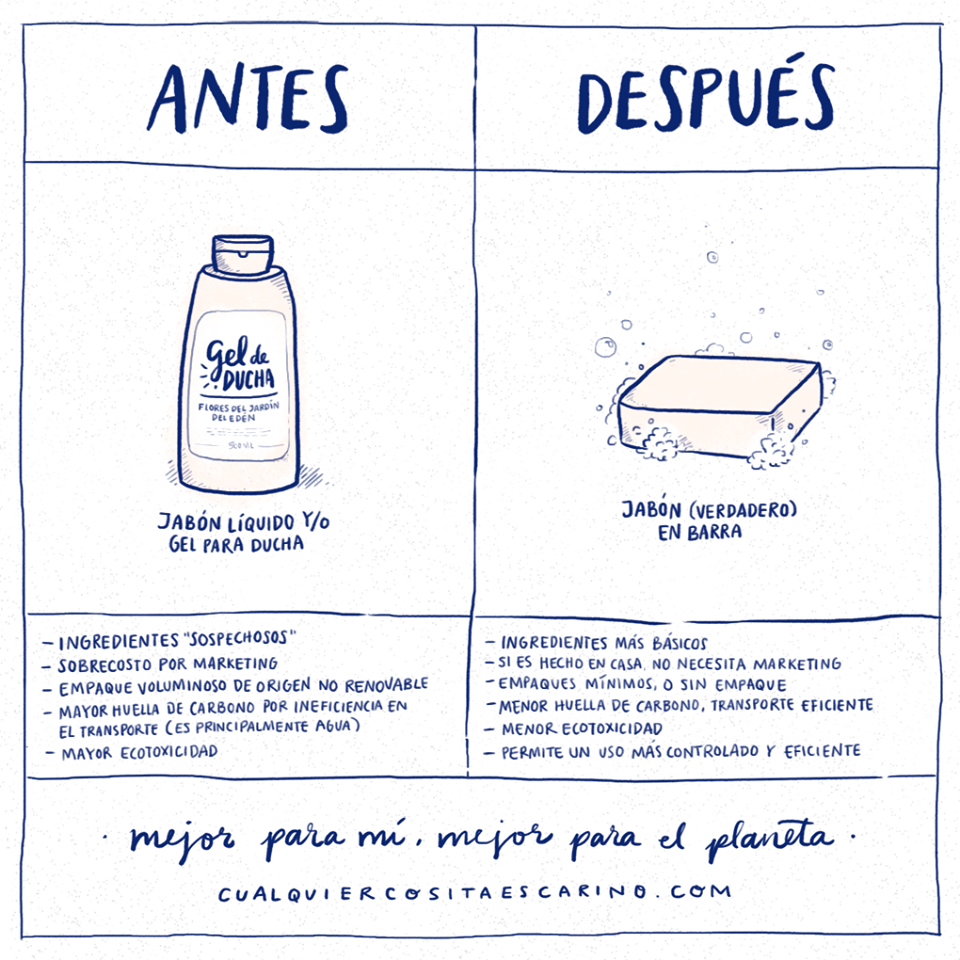 ANTES
DESPUÉS
Gel de
DUCHA
FLORES DEL JARDÍN
DEL EDÉN
JABÓN LÍQUIDO Y/O
GEL PARA DUCHA
JABÓN (VERDADERO)
EN BARRA
- INGREDIENTES "SOSPECHOSOS"
- SOBRECOSTO POR MARKETING
- EMPAQUE VOLUMINOSO DE ORIGEN NO RENOVABLE
- MAYOR HUELLA DE CARBONO POR INEFICIENCIA EN
EL TRANSPORTE (ES PRINCIPALMENTE AGUA)
- MAYOR ECOTOXICIDAD
- INGREDIENTES MÁS BÁSICOS
- SI ES HECHO EN CASA, NO NECESITA MARKETING
- EMPAQUES MÍNIMOS, O SIN EMPAQUE
- MENOR HUELLA DE CARBONO, TRANSPORTE EFICIENTE
- MENOR ECOTOXICIDAD
- PERMITE UN USO MÁS CONTROLADO Y EFICIENTE
· mejor para mí, mejor para el planeta ·
CUALQUIERCOSITAESCARINO.COM